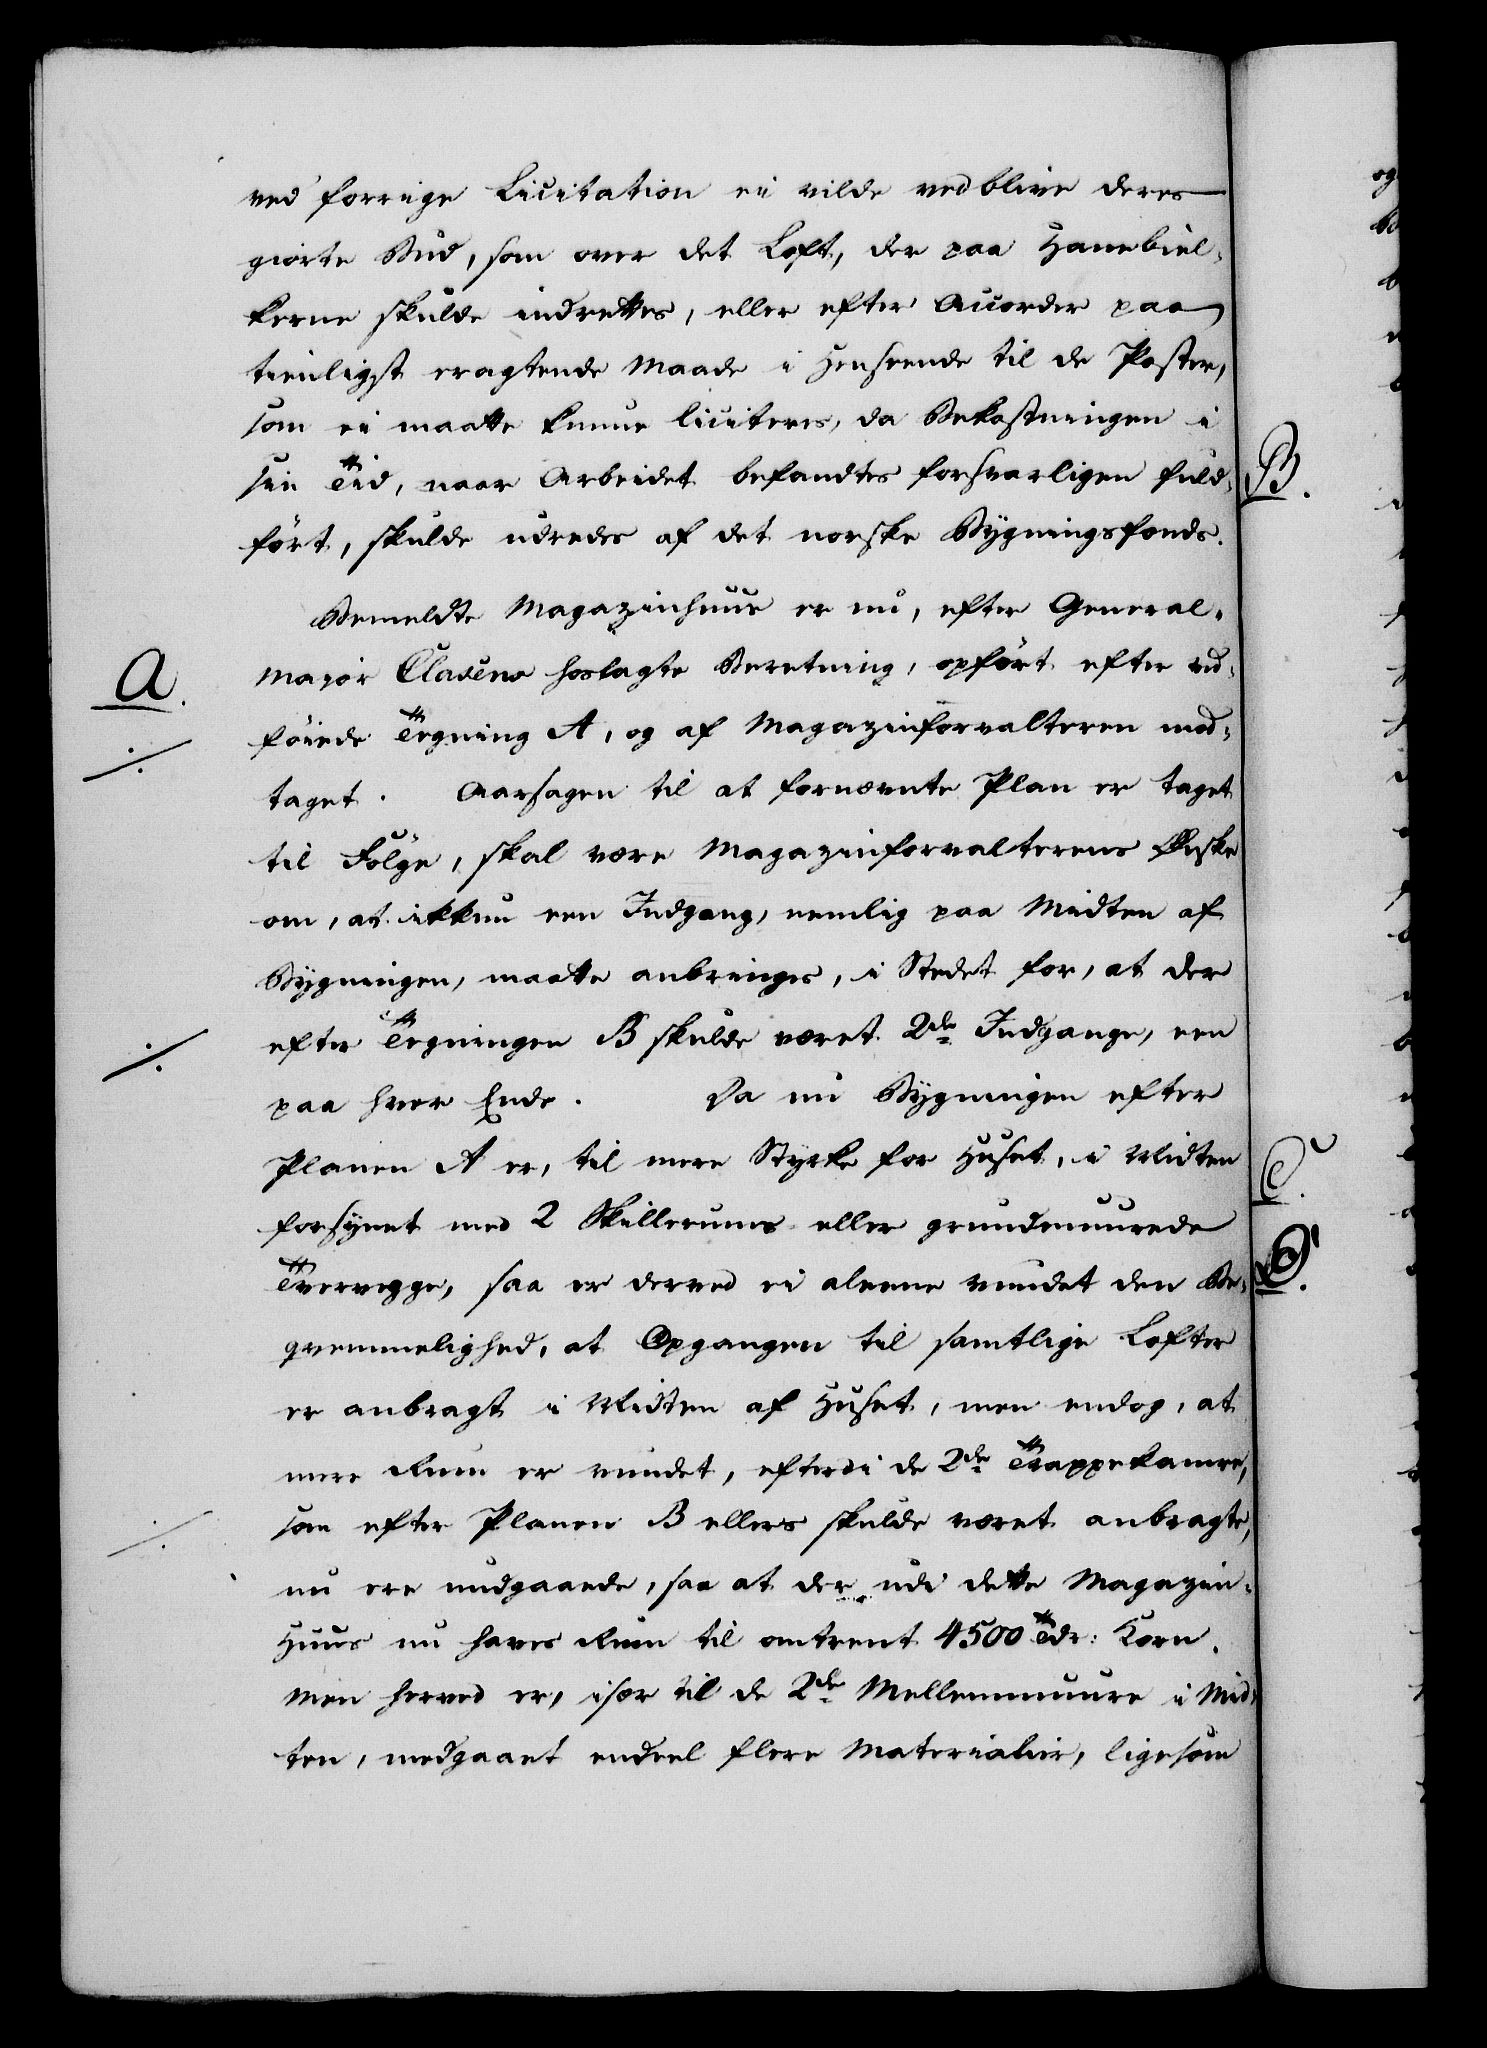 ved forrige Licitation ei vilde vedblive deres
giorte Bud, som over det Loft, der paa Hanebiel-
kerne skulde indrettes, eller efter Accorder paa
tienligst eragtende Maade i Henseende til de Poster,
som ei maatte kunne liciteres, da Bekostningen i
sin Tid, naar Arbeidet befandtes forsvarligen fuld-
ført, skulde udredes af det norske Bygningsfonds.
Bemeldte Magazinhuus er nu, efter General-
major Clasens hoslagte Beretning, opført efter
A.
føiede Tegning A, og af Magazinforvalteren mod-
taget. Aarsagen til at fornævnte Plan er taget
til Følge, skal være Magazinforvalterens Ønske
om, at ikkun een Indgang, nemlig paa Midten af
Bygningen, maatte anbringes, i Stedet for, at der
efter Tegningen B skulde været 2de Indgange, een
paa hver Ende. Da nu Bygningen efter
Planen A er, til mere Styrke for Huset, i Midten
forsynet med 2 Skillerums eller grundmuurede
Tvervegge, saa er derved ei aleene vundet den Be-
qvemmelighed, at Opgangen til samtlige Lofter
er anbragt i Midten af Huset, men endog, at
mere Rum er vundet, efterdi de 2de Trappekamre,
som efter Planen B ellers skulde været anbragte,
nu ere undgaaede, saa at der udi dette Magazin-
Huus nu haves Rum til omtrent 4500 Tdr: Korn.
Men herved er, især til de 2de Mellemmuure i Mid-
ten, medgaaet endeel flere Materialier, ligesom
B.
C.
D.
og